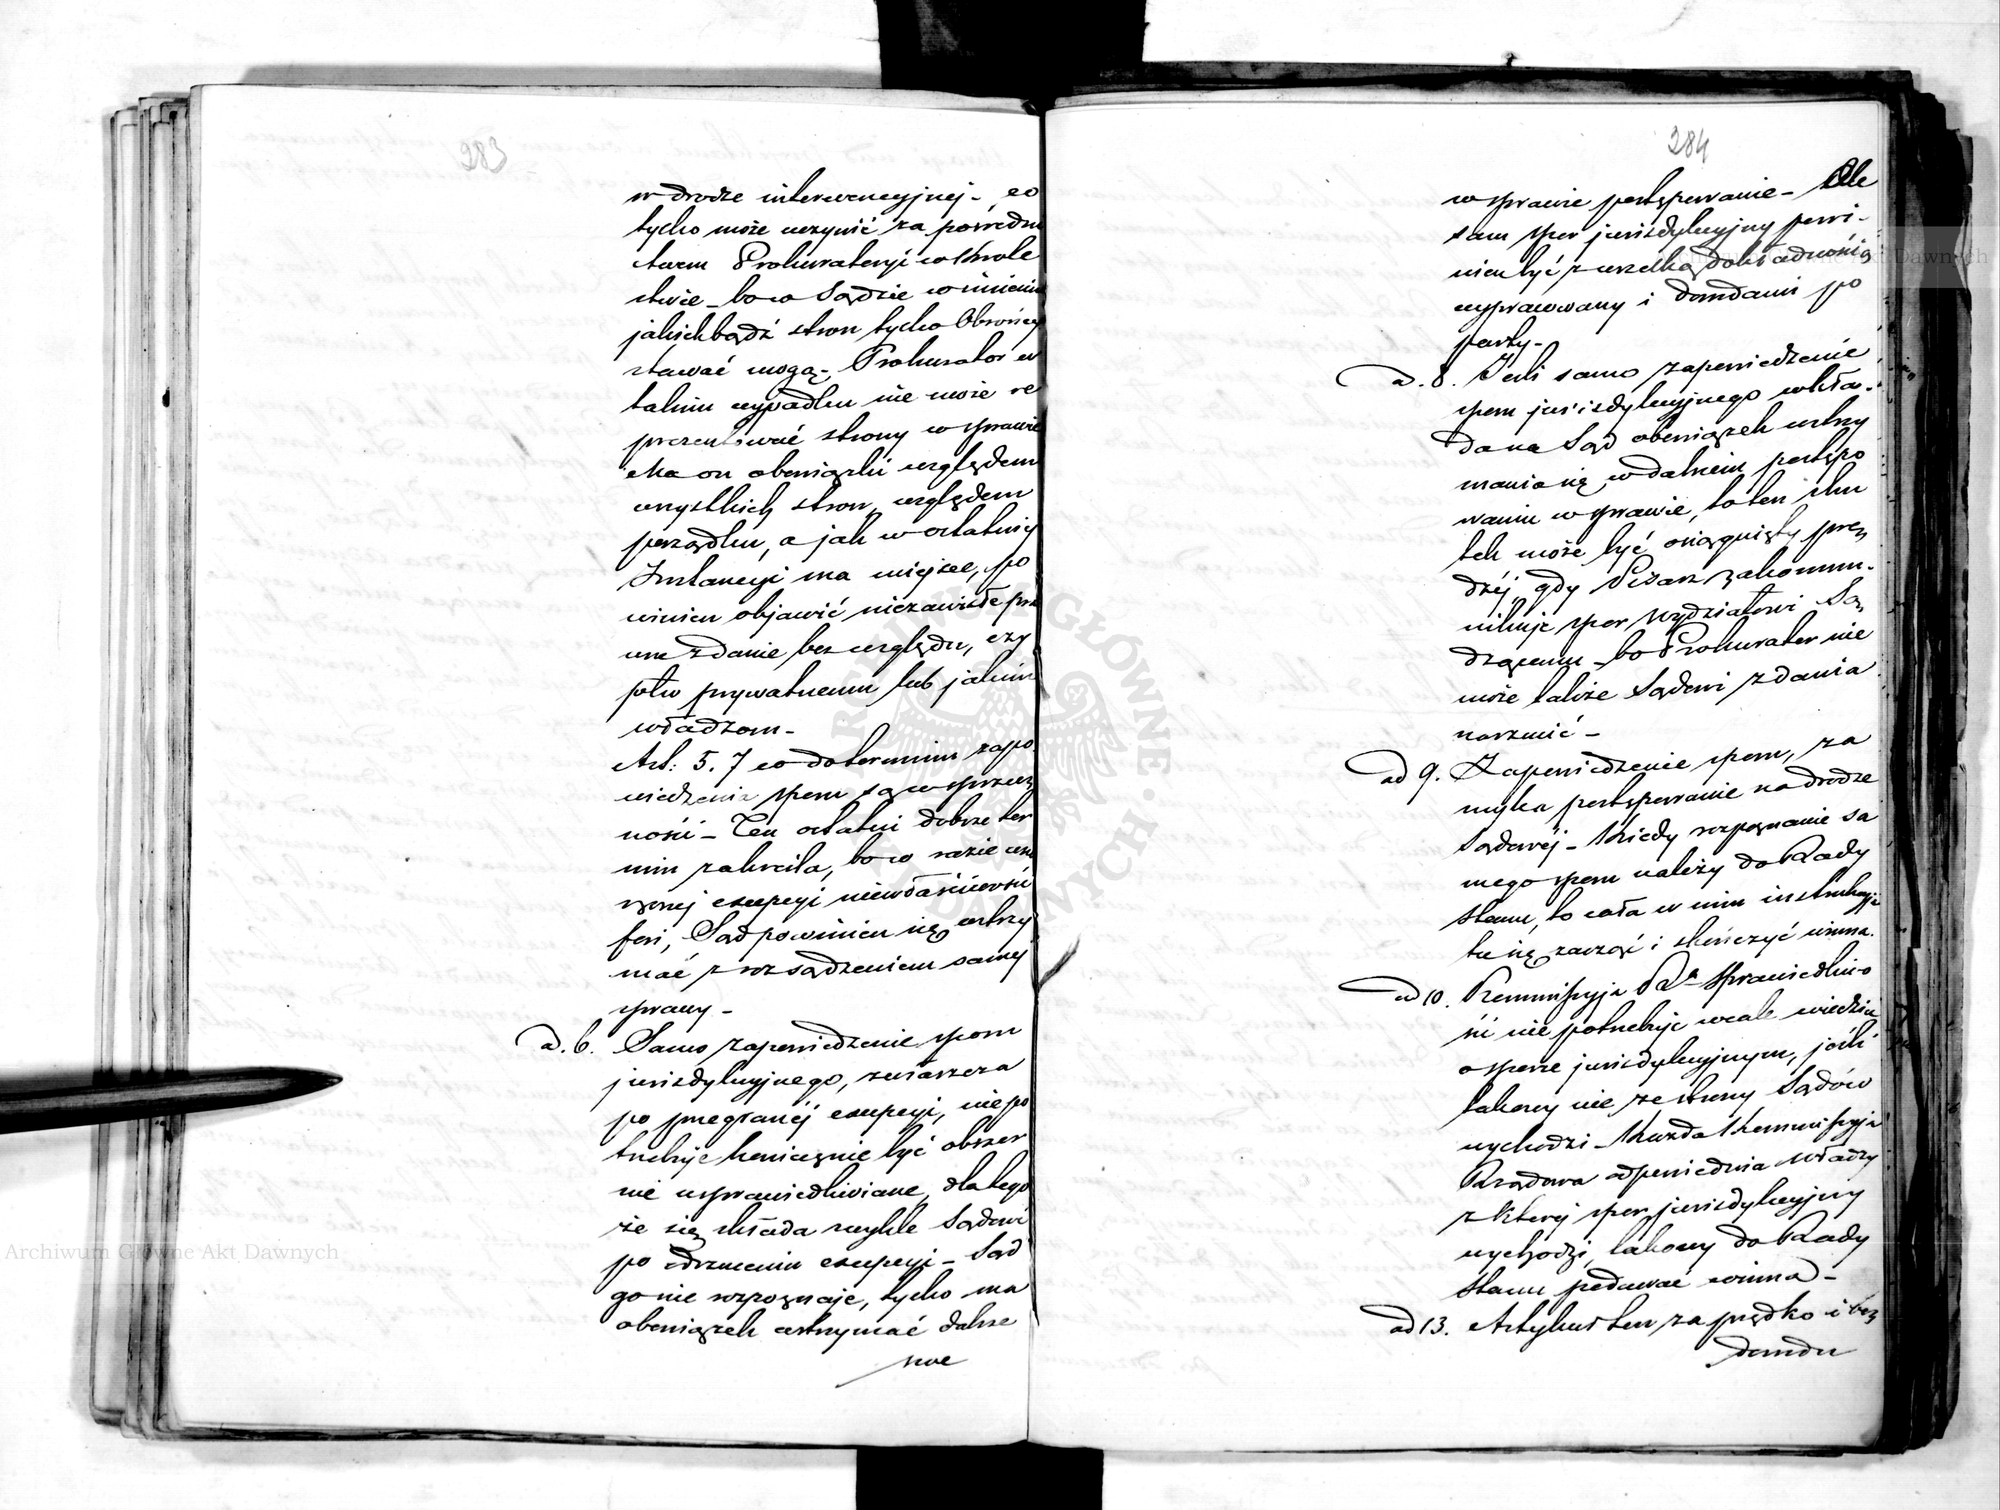 283
w drodze interwencyjnej – co
tylko może uczynić za pośredni
ctwem Prokuratoryi w Króle
stwie – bo w Sądzie w imieniu
jakichbądź stron tylko Obrońcy
stawać mogą – Prokurator w
takim wypadku nie może re
prezentować strony w sprawie
Ma on obowiązki względem
wszystkich stron, względem
porządku, a jak w ostatniej
Instancyi ma miejsce, po
winien objawić niezawisłe pra
wne zdanie bez względu, czy
prywatnemu lub jakim
władzom –
Art: 5. 7 co do terminu zapo
wiedzenia sporu są w sprzecz
ności – Ten ostatni dobrze ter
min zakreśla, bo w razie wnie
sionej excepcyi niewłaściwości
fori, Sąd powinien się wstrzy
mać z rozsądzeniem samej
sprawy –
ad. 6. Samo zapowiedzenie sporu
jurisdykcyjnego, zwłaszcza
po przegranéj excepcyi, nie po
trzebuje koniecznie być obszer
nie usprawiedliwiane, dla tego
że się składa zwykle Sądowi
po odrzuceniu excepcyi – Sąd
go nie rozpoznaje, tylko ma
obowiązek wstrzymać dalsze
284
w sprawie postępowanie – Ale
sam spór jurisdykcyjny powi-
nien być z wszelką dokładnością
wypracowany i dowodami po
party –
ad. 8. Jeśli samo zapowiedzenie
sporu jurisdykcyjnego wkła-
da na Sąd obowiązek wstrzy
mania się w dalszem postępo
waniu w sprawie, to ten sku
tek może być osiągnięty prę
dzéj, gdy Pisarz zakommu-
nikuje spór Wydziałowi Są
dzącemu – bo Prokurator nie
może także Sądowi zdania
narzucić –
ad 9. Zapowiedzenie sporu, za
myka postępowanie na drodze
Sądowéj – Kiedy rozpoznanie sa
mego sporu należy do Rady
Stanu, to cała w nim instrukcyja
tu się zacząć i skończyć winna.
ad 10. Kommissyja Rz. Sprawiedliwo
ści nie potrzebuje wcale wiedzieć
o sporze jurisdykcyjnym, jeśli
takowy nie ze strony Sądów
wychodzi – Każda Kommissyja
Rządowa odpowiednia władzy
z której spór jurisdykcyjny
wychodzi, takowy do Rady
Stanu podawać winna –
ad 13. Artykuł ten za prędko i bez
dowodu